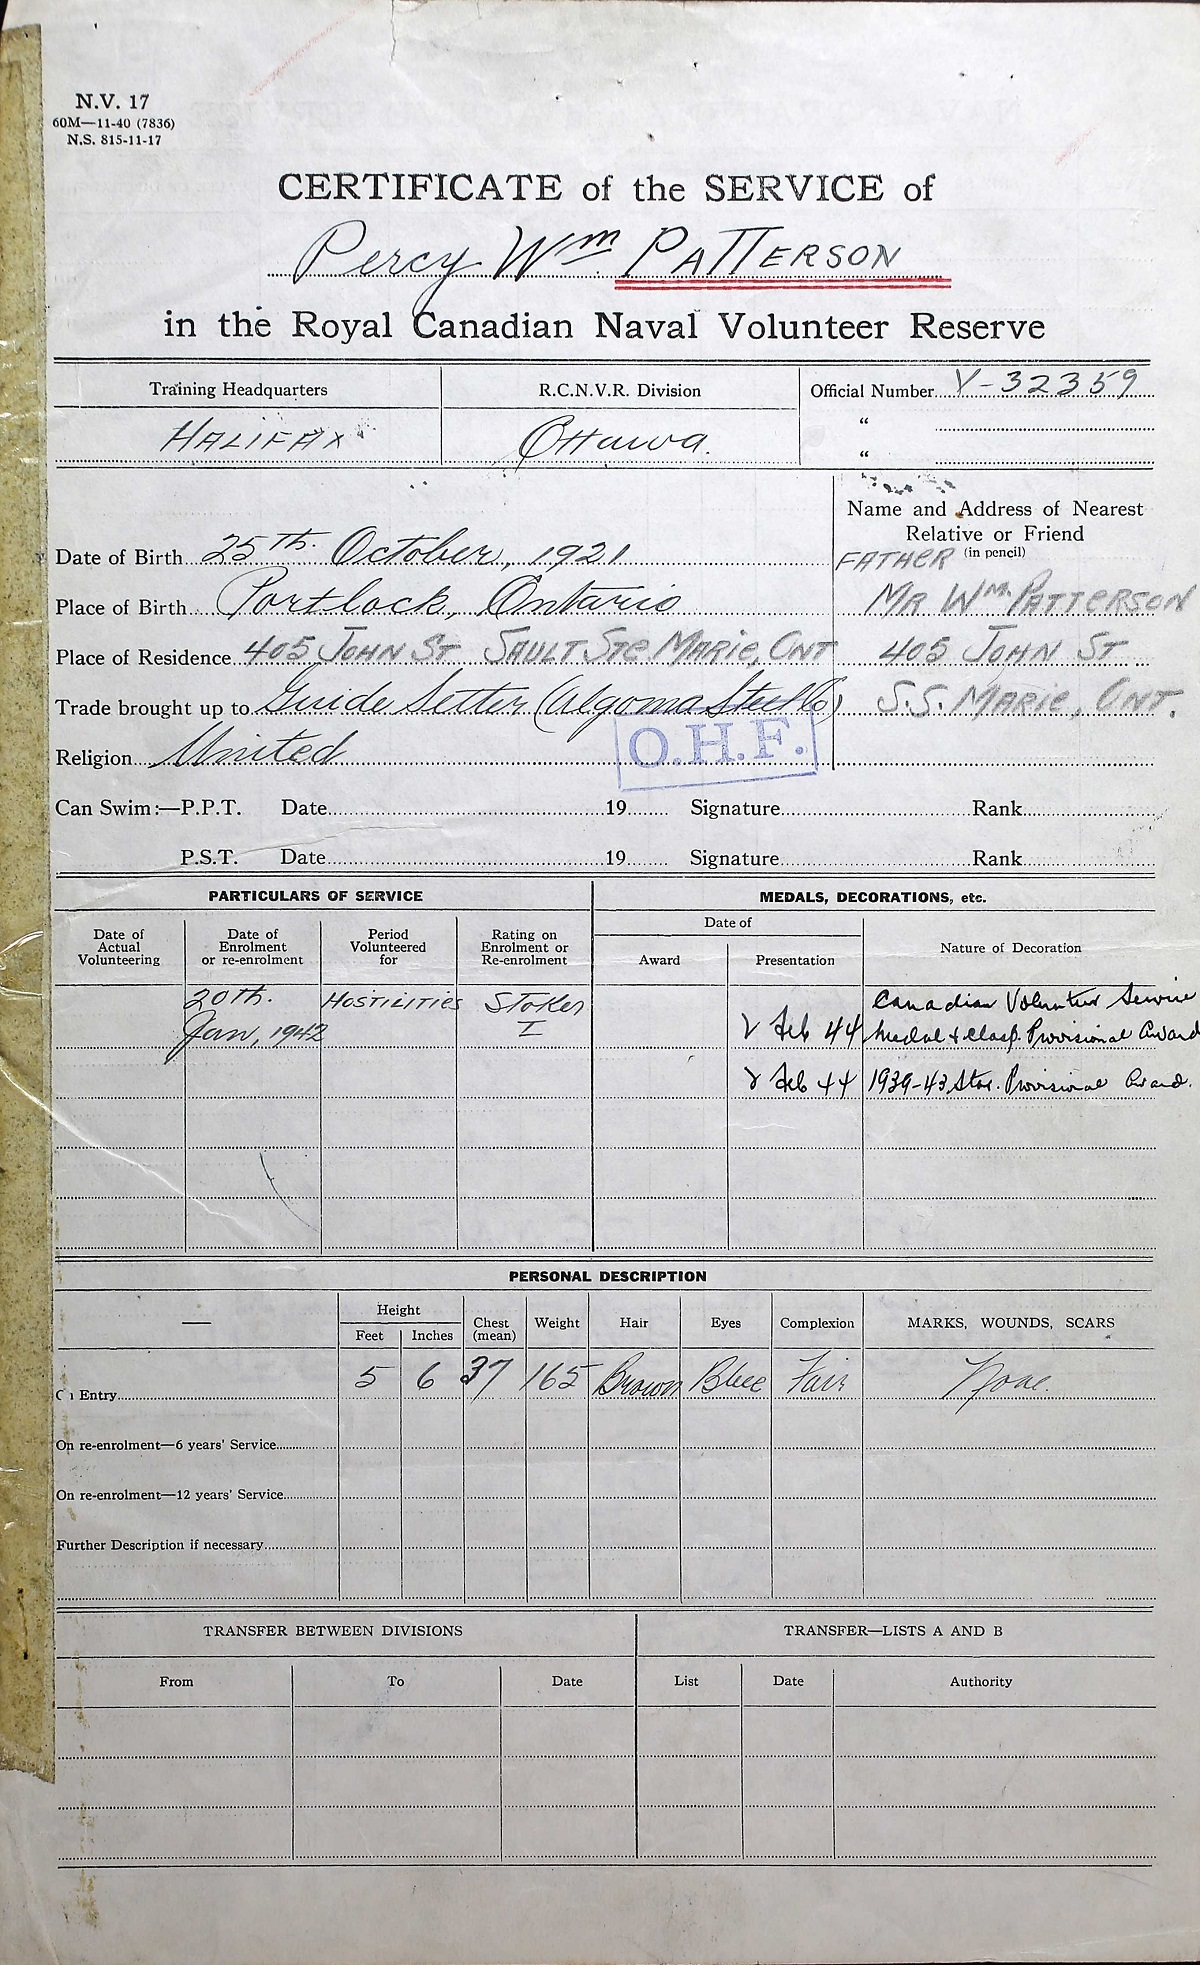 N.V. 17
60M—11-40 (7836)
N.S. 815-11-17
CERTIFICATE of the SERVICE of
Percy Wm PATTERSON
in the Royal Canadian Naval Volunteer Reserve
Training Headquarters R.C.N.V.R. Division Official Number V-32359
HALIFAX Ottawa. "
"
Name and Address of Nearest
Relative or Friend
(in pencil)
Date of Birth 25th. October, 1921 FATHER
Place of Birth Portlock, Ontario MR WM. PATTERSON
Place of Residence 405 JOHN ST SAULT STE MARIE, ONT 405 JOHN ST
Trade brought up to Guide Setter (Algoma Steel Co) S.S. MARIE, ONT.
Religion United O.H.F.
Can Swim:—P.P.T. Date 19 Signature Rank
P.S.T. Date 19 Signature Rank
PARTICULARS OF SERVICE MEDALS, DECORATIONS, etc.
Date of Actual Volunteering Date of Enrolment or re-enrolment Period Volunteered for Rating on Enrolment or Re-enrolment Date of Award Presentation Nature of Decoration
20th. HOSTILITIES Stoker Canadian Volunteer Service
Jan, 1942 II Feb 44 Medal & Clasp. Provisional Award
Feb 44 1939-43 Star. Provisional Award.
PERSONAL DESCRIPTION
— Height Feet Inches Chest (mean) Weight Hair Eyes Complexion MARKS, WOUNDS, SCARS
On Entry 5 6 37 165 Brown Blue Fair None.
On re-enrolment—6 years' Service
On re-enrolment—12 years' Service
Further Description if necessary
TRANSFER BETWEEN DIVISIONS TRANSFER—LISTS A AND B
From To Date List Date Authority